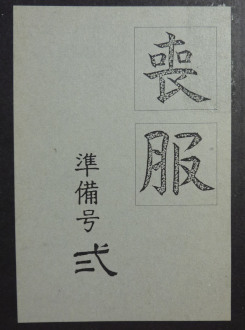 喪服
準備号 弐